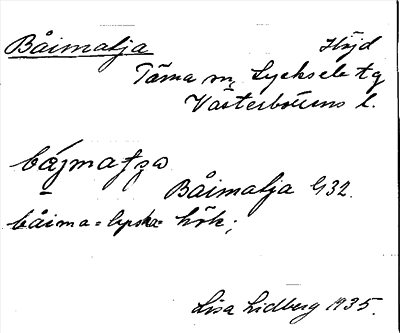 Båimatja Höjd
Tärna sn, Lycksele tg
Västerbottens l.
båi̯matʒa
Båimatja G32.
båima = lapska hök;
Lisa Lidberg 1935.